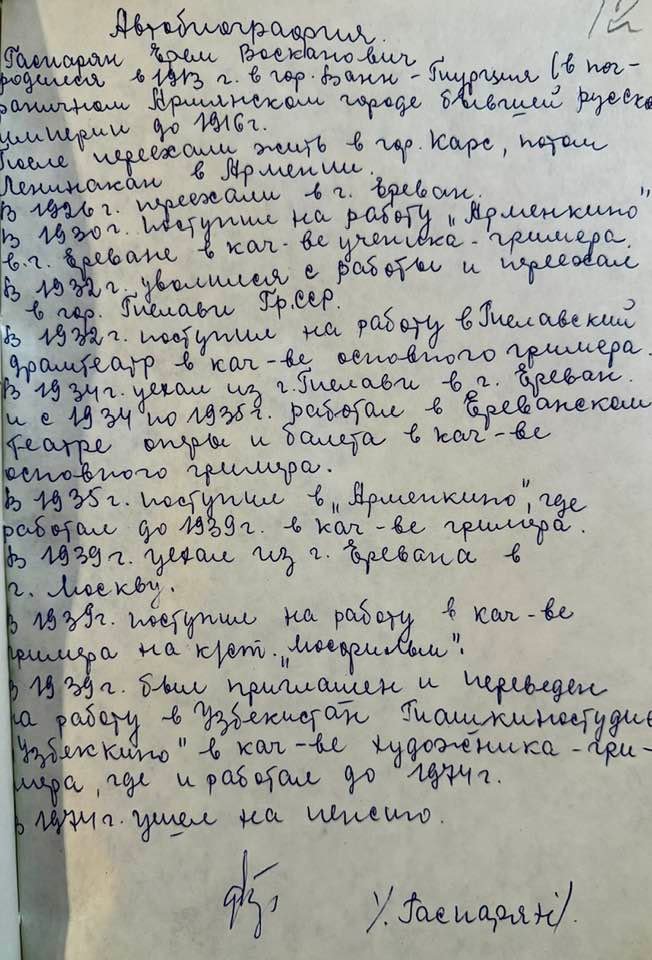 12
Автобиография.
Гаспарян Ерем Восканович
родился в 1913 г. в гор. Ванн - Тиурция (в пог-
раничном Армянском городе бывшей русско
империи до 1916 г.
После переехали жить в гор. Карс, потом
Ленинакан в Армении.
В 1926 г. переехали в г. Ереван.
В 1930 г. поступил на работу „Арменкино"
в г. Ереване в кач-ве ученика - гримера.
В 1932 г. уволился с работы и переехал
в гор. Тиелави Гр.ССР.
В 1932 г. поступил на работу в Тиелавский
драмтеатр в кач-ве основного гримера.
В 1934 г. уехал из г. Тиелави в г. Ереван.
и с 1934 по 1935 г. работал в Ереванском
театре оперы и балета в кач-ве
основного гримера.
В 1935 г. поступил в „Арменкино", где
работал до 1939 г. в кач-ве гримера.
В 1939 г. уехал из г. Еревана в
г. Москву.
В 1939 г. поступил на работу в кач-ве
гримера на к/ст. „Мосфильм".
В 1939 г. был приглашен и переведен
на работу в Узбекистан Тиашкиностудию
"Узбеккино" в кач-ве художника - гри-
мера, где и работал до 1974 г.
В 1974 г. ушел на пенсию.
/. Гаспарян /.